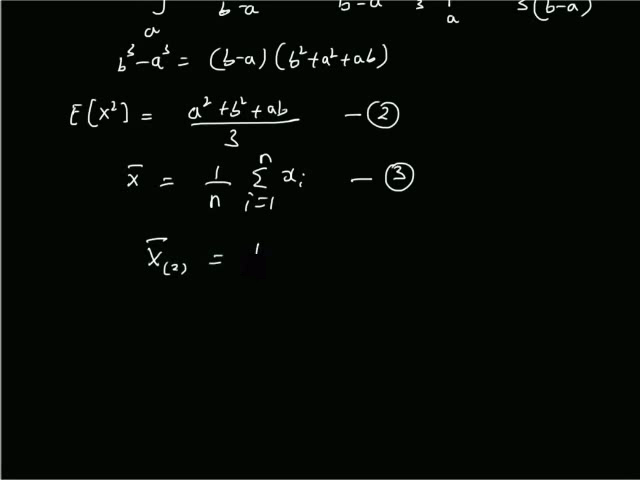 a b-a b-a 3 a 3(b-a)
b³-a³ = (b-a) (b²+a²+ab)
E[X²] = a²+b²+ab / 3 — ②
x̄ = 1/n n∑i=1 xᵢ — ③
X̄₍₂₎ = 1